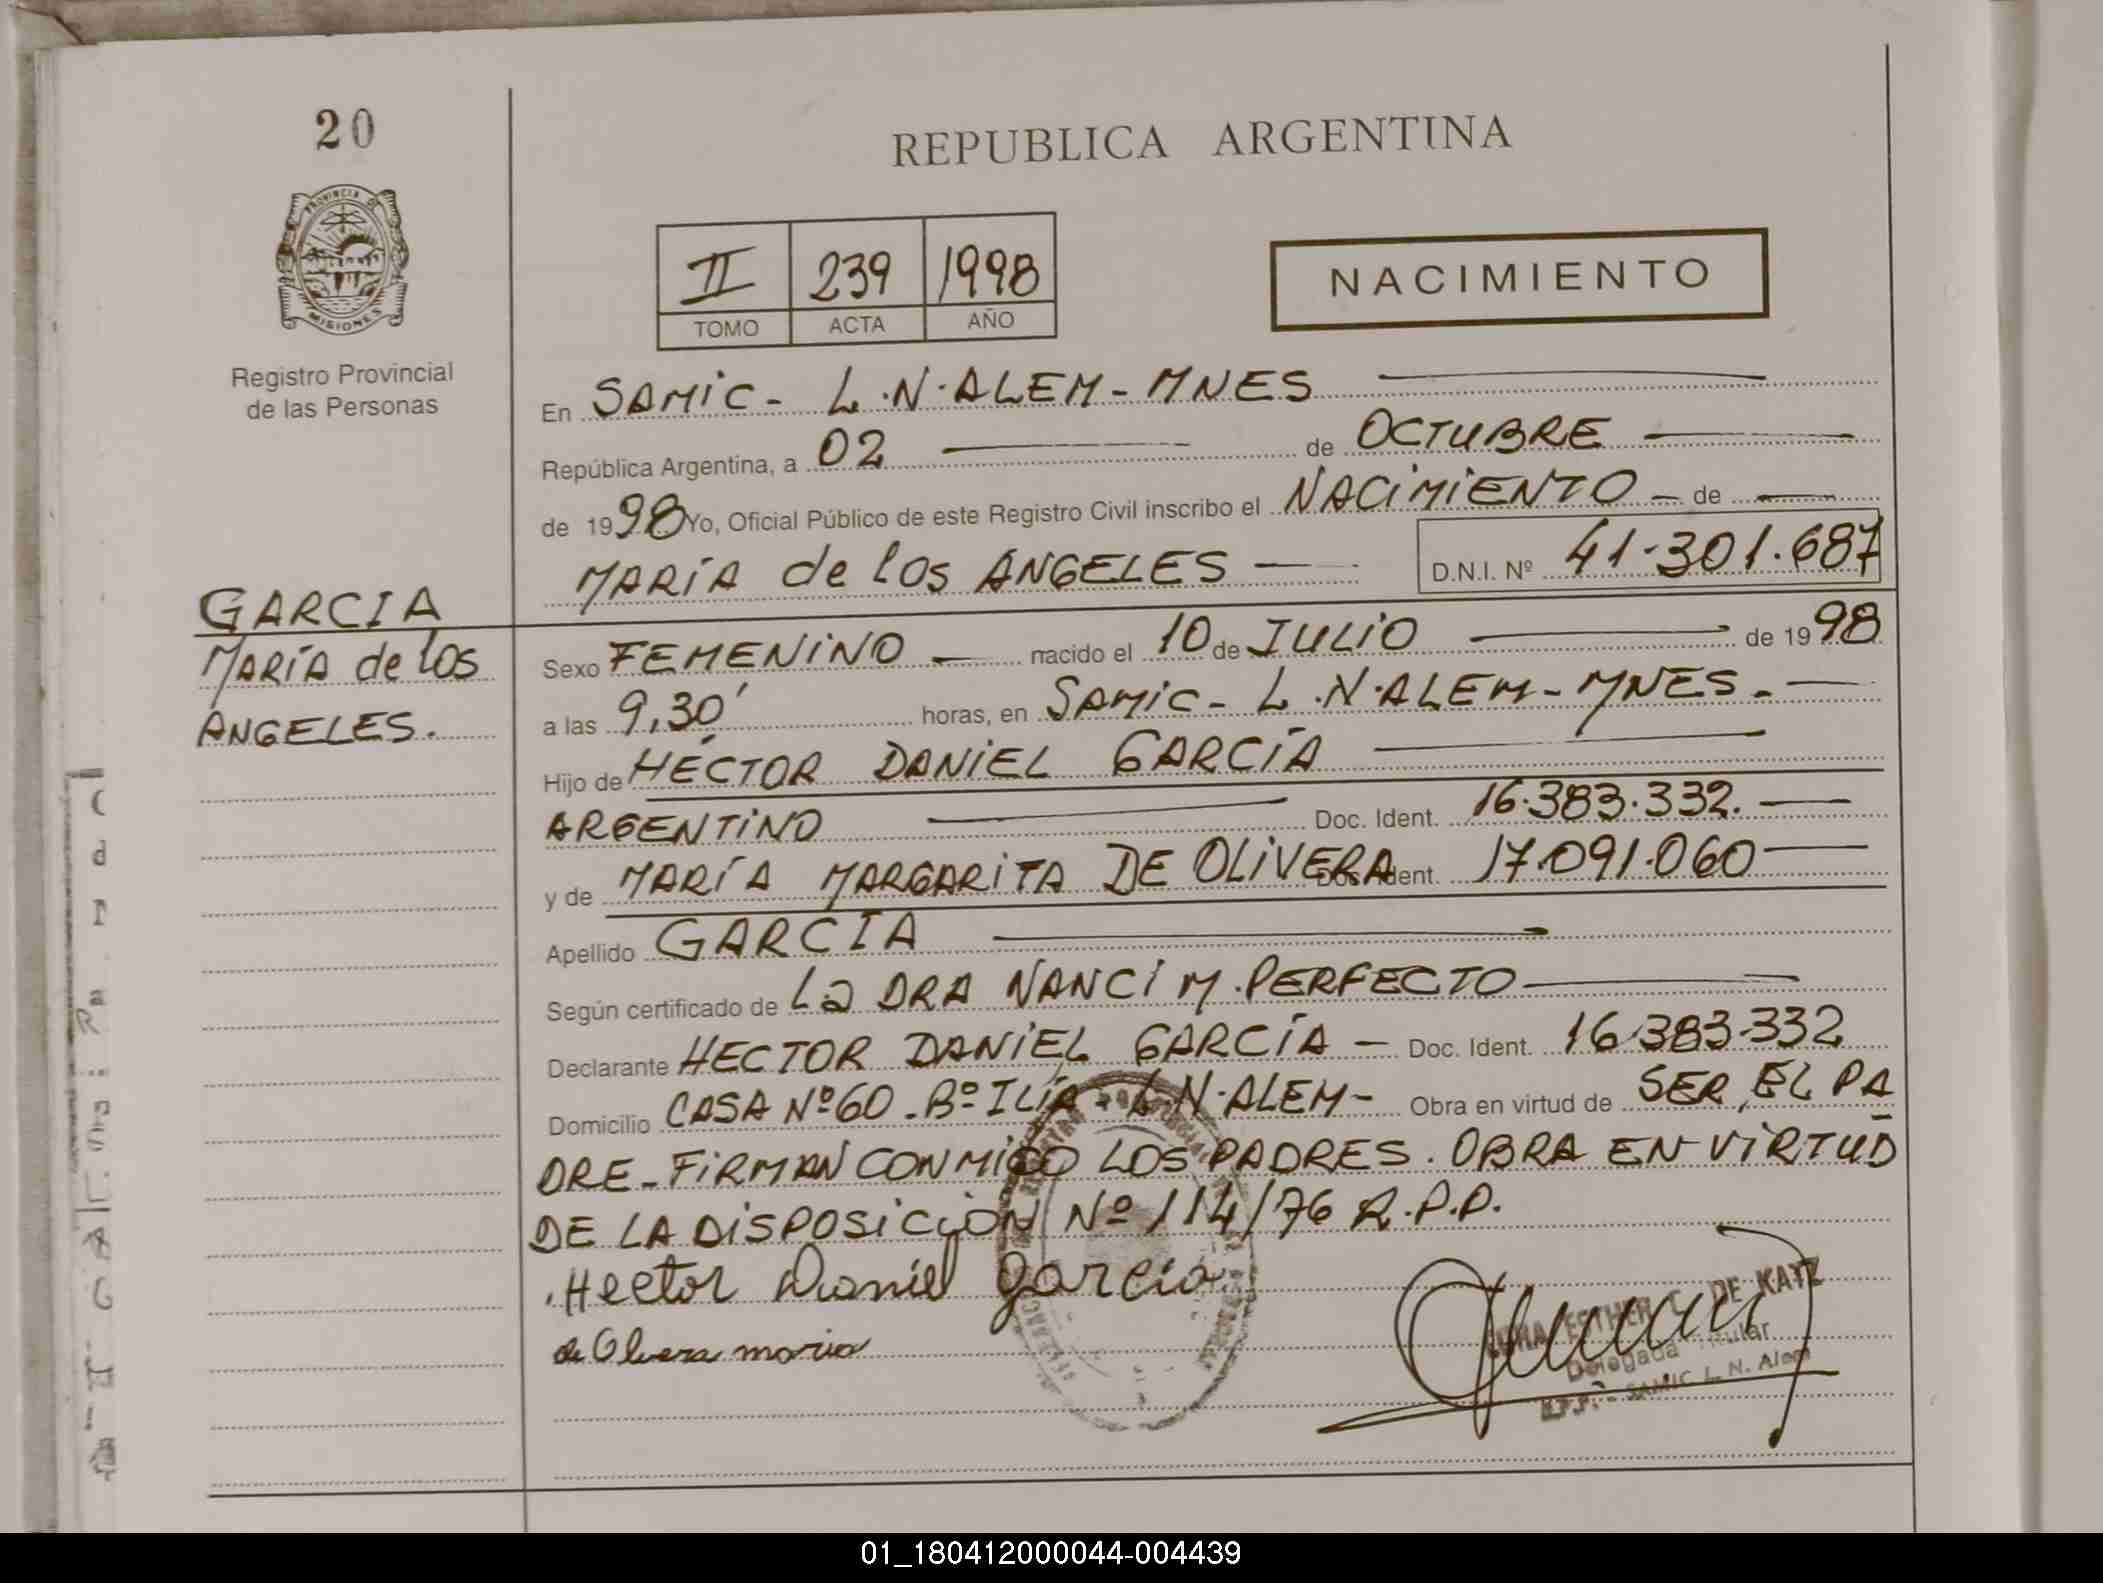 20
REPUBLICA ARGENTINA
PROVINCIA DE
MISIONES
Registro Provincial
de las Personas
II 239 1998
TOMO ACTA AÑO
NACIMIENTO
En SAMIC - L.N.ALEM - MNES
República Argentina, a 02 de OCTUBRE
de 1998 Yo, Oficial Público de este Registro Civil inscribo el NACIMIENTO de
MARÍA de los ANGELES D.N.I. Nº 41.301.687
GARCIA
MARÍA de los
ANGELES.
Sexo FEMENINO nacido el 10 de JULIO de 1998
a las 9,30' horas, en SAMIC - L.N.ALEM - MNES.
Hijo de HÉCTOR DANIEL GARCÍA
ARGENTINO Doc. Ident. 16.383.332.
y de MARÍA MARGARITA DE OLIVERA Doc. Ident. 17.091.060
Apellido GARCIA
Según certificado de La DRA NANCI M. PERFECTO
Declarante HECTOR DANIEL GARCÍA - Doc. Ident. 16.383.332
Domicilio CASA Nº 60 - Bº ILIA - L.N.ALEM - Obra en virtud de SER EL PA
DRE - FIRMAN CONMIGO LOS PADRES. OBRA EN VIRTUD
DE LA DISPOSICION Nº 114/76 R.P.P.
Hector Daniel Garcia
de Olivera maria
ESTHER C. DE KATZ
Delegada Titular
R.P.P. - SAMIC L. N. Alem
01_180412000044-004439